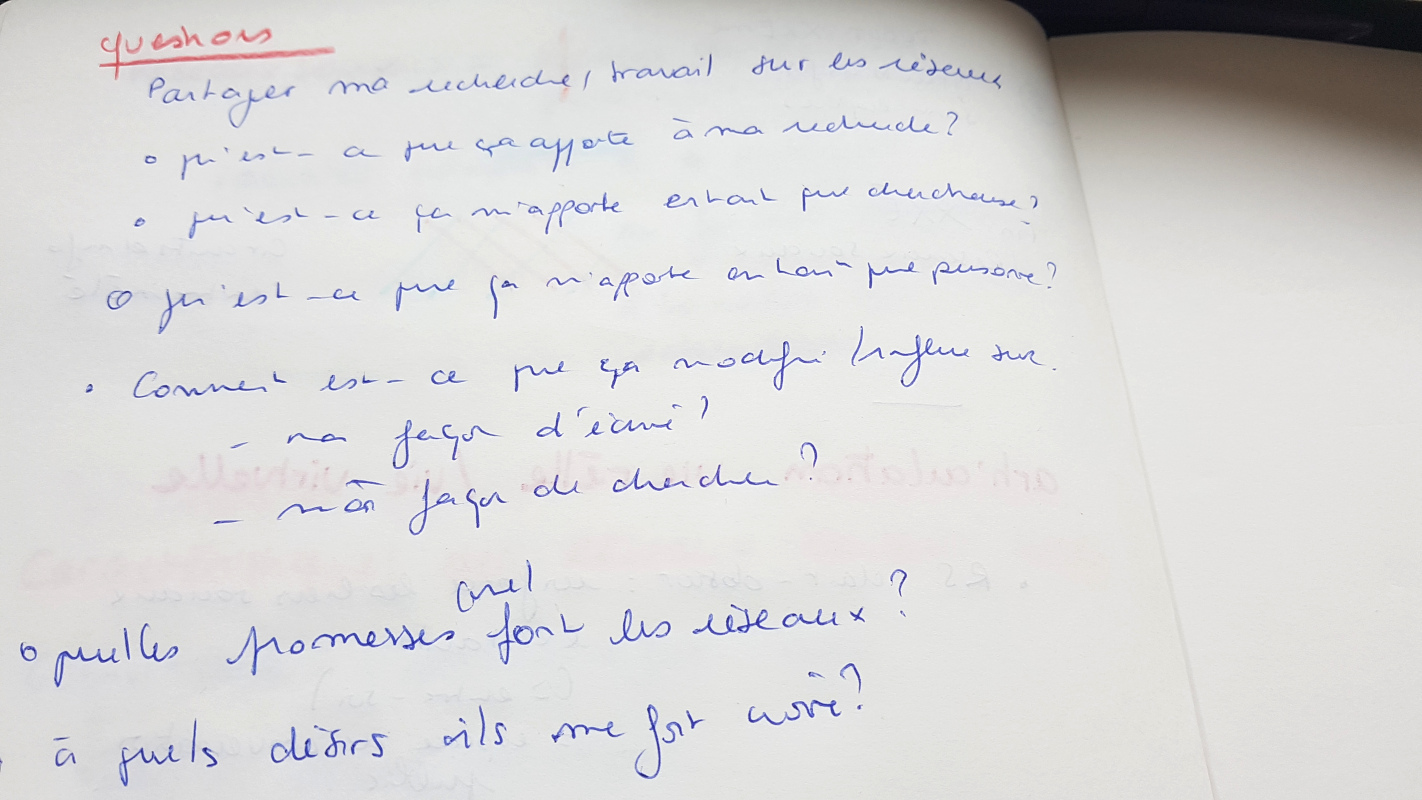 questions
Partager ma recherche / travail sur les réseaux
o qu'est-ce que ça apporte à ma recherche ?
o qu'est-ce ça m'apporte en tant que chercheuse ?
o qu'est-ce que ça m'apporte en tant que personne ?
• Comment est-ce que ça modifie / influe sur
- ma façon d'écrire ?
- ma façon de chercher ?
quel
o quelles promesses font les réseaux ?
à quels désirs ils me font croire ?